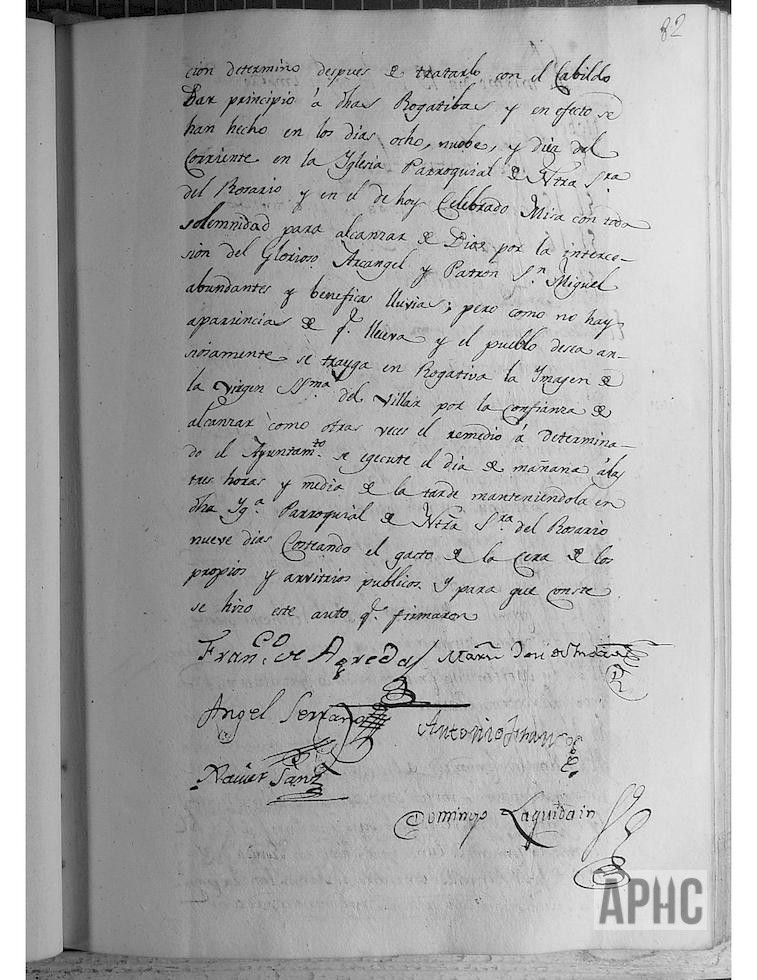 82
cion determino despues de tratarlo con el Cabildo
Dar principio á dhas Rogatibas y en efecto se
han hecho en los dias ocho, nuebe, y diez del
Corriente en la Yglesia Parroquial de Ntra Sra
del Rosario y en el de hoy Celebrado Misa con toda
solemnidad para alcanzar de Dios por la interce-
sion del Glorioso Arcangel y Patron Sn Miguel
abundantes y beneficas lluvias; pero como no hay
apariencias de q.e llueva y el pueblo desea an-
siosamente se trayga en Rogativa la Ymagen de
la Virgen SSma del Villar por la confianza de
alcanzar como otras veces el remedio á determina-
do el Ayuntamto se egecute el dia de mañana á las
tres horas y media de la tarde manteniendola en
dha Yga Parroquial de Ntra Sra del Rosario
nueve dias Costeando el gasto de la Cera de los
propios y arvitrios publicos. Y para que conste
se hizo este auto q.e firmaron
Franco de Agreda
Angel Serrano
Antonio
Xavier Sanz
Domingo Laquidain
APHC